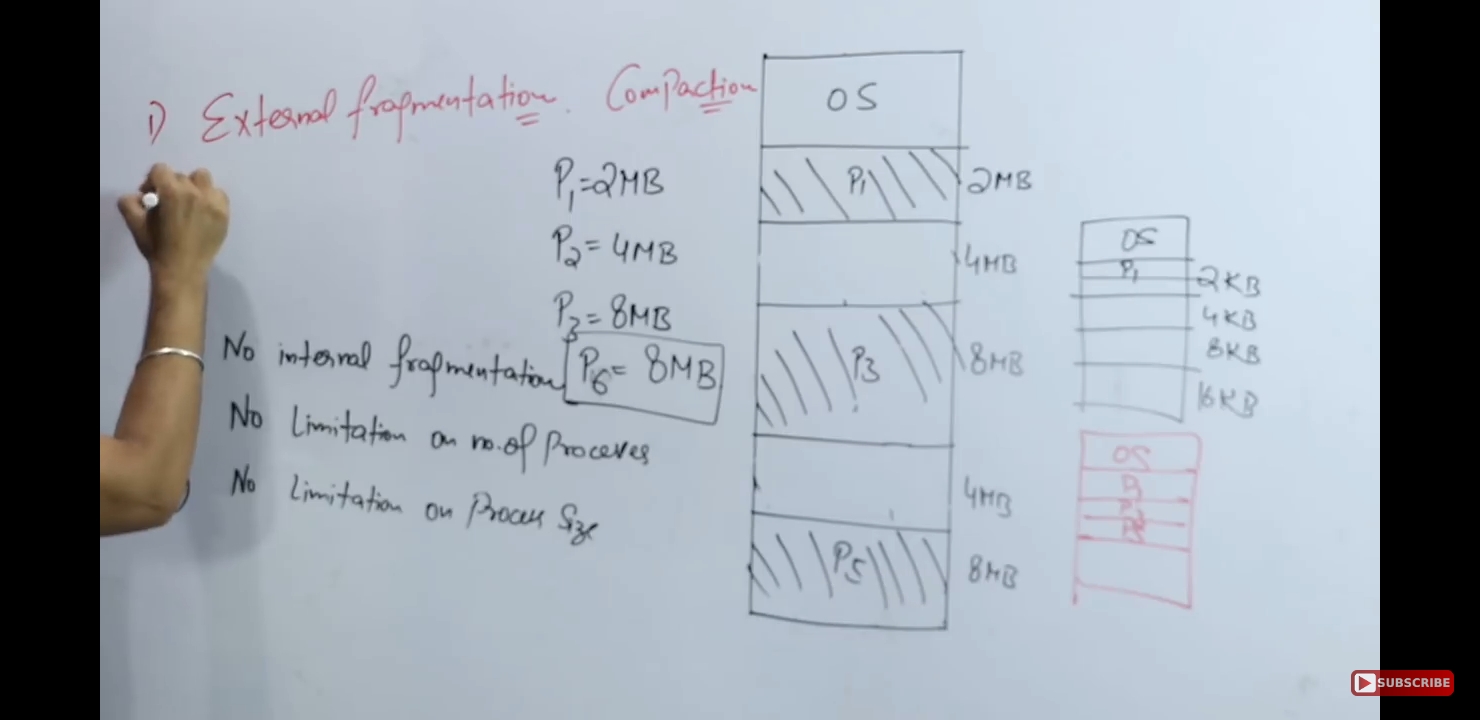 1) External fragmentation. Compaction
P1=2MB
P2= 4MB
P3= 8MB
No internal fragmentation
P6= 8MB
No Limitation on no. of Processes
No Limitation on Process Size
OS
P1
2MB
4MB
P3
8MB
4MB
P5
8MB
OS
P1
2KB
4KB
8KB
16KB
OS
SUBSCRIBE